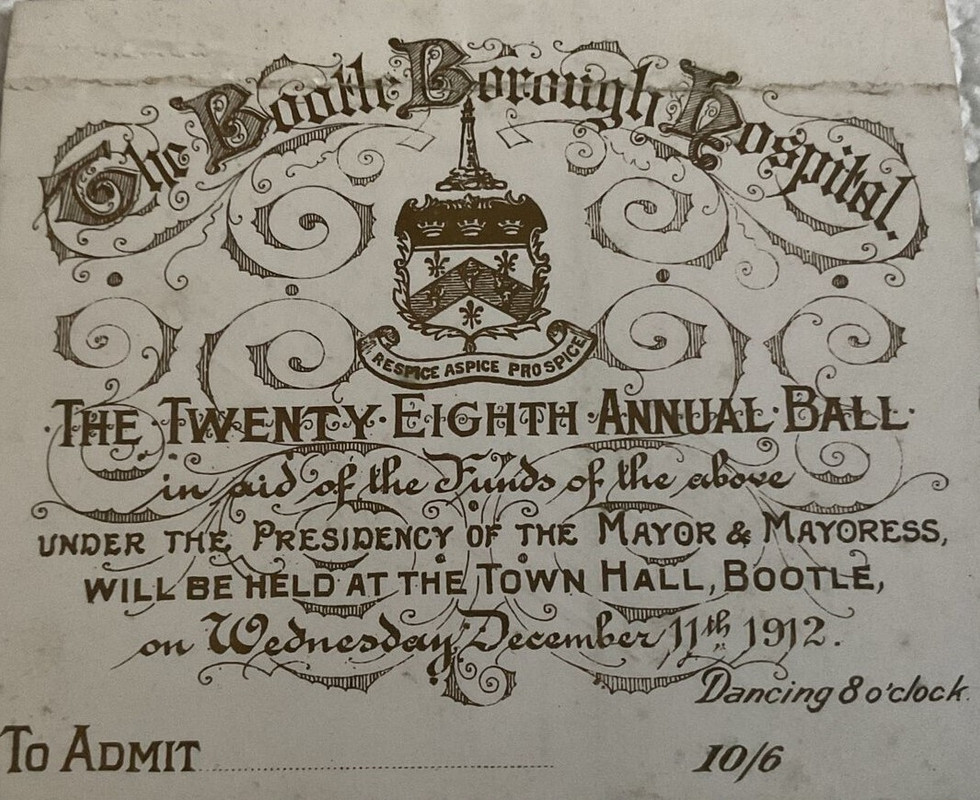 The Bootle Borough Hospital.
RESPICE ASPICE PROSPICE
·THE·TWENTY·EIGHTH·ANNUAL·BALL·
in aid of the Funds of the above
UNDER THE PRESIDENCY OF THE MAYOR & MAYORESS,
WILL BE HELD AT THE TOWN HALL, BOOTLE,
on Wednesday, December 11th 1912.
Dancing 8 o'clock.
TO ADMIT.......................... 10/6